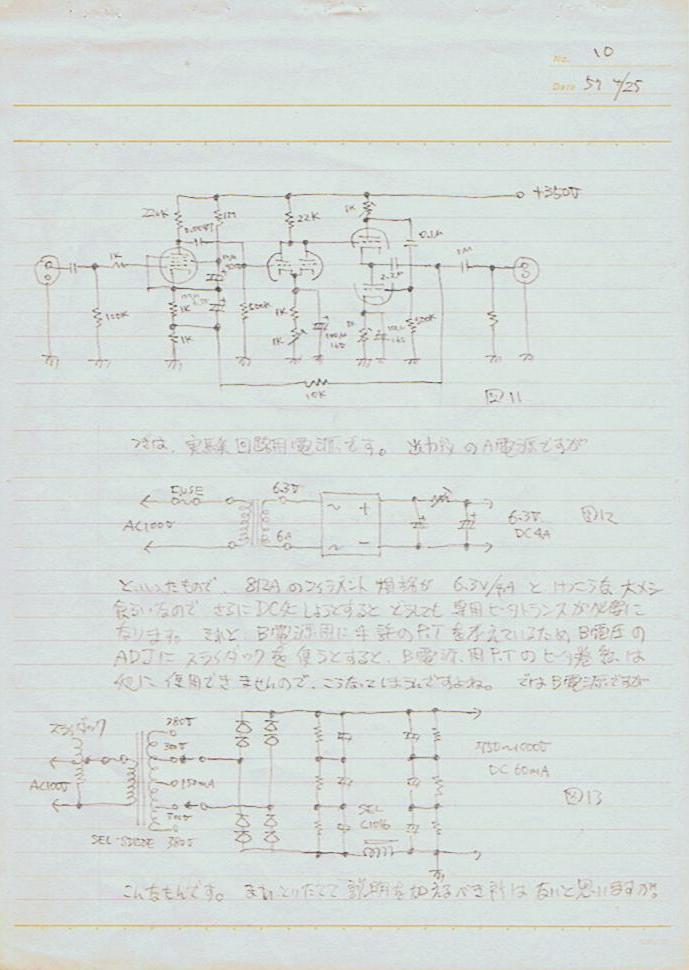 No. 10
Date 57 4/25
+350V
22K
1M
22K
1K
0.1μ
1K
2.2μ
1K
1K
100K
1K
1K
1K
10K
図11
つぎは、実験回路用電源です。 出力段のA電源ですが
FUSE
6.3V
AC100V
6A
6.3V
DC4A
図12
といったもので、812Aのフィラメント規格が 6.3V/4A とけっこうな大メシ
食らいなので さらにDC化しようとすると どうしても専用ヒータトランスが必要に
なります。 それと B電源用に手許のP.Tを考えているため B電圧の
ADJに スライダックを使うとすると、B電源用P.Tのヒータ巻線は
他に使用できませんので、こうなってしまうんですよね。 ではB電源ですが
スライダック
380V
AC100V
150mA
380V
SEL
750〜1000V
DC 60mA
図13
こんなもんです。 まあ とりたてて 説明を加えるべき所は ないと思いますが。